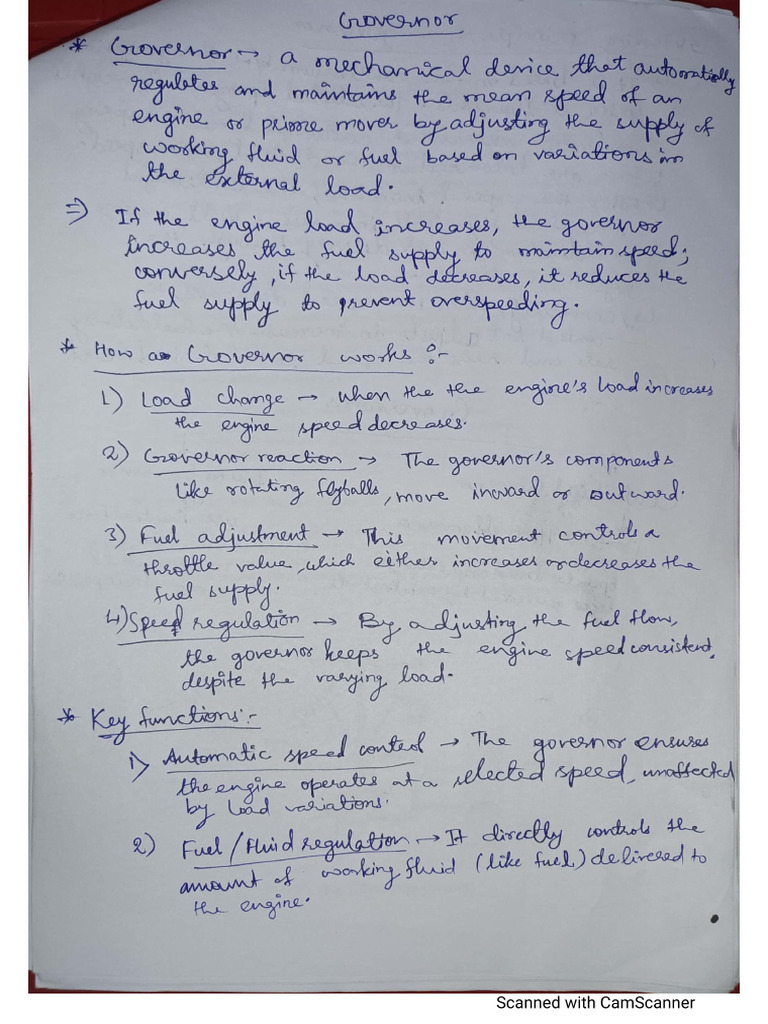 Governor
* Governor → a mechanical device that automatically
regulates and maintains the mean speed of an
engine or prime mover by adjusting the supply of
working fluid or fuel based on variations in
the external load.
⇒ If the engine load increases, the governor
increases the fuel supply to maintain speed;
conversely, if the load decreases, it reduces the
fuel supply to prevent overspeeding.
* How a Governor works :-
1) Load change → when the the engine's load increases
the engine speed decreases.
2) Governor reaction → The governor's components
like rotating flyballs, move inward or outward.
3) Fuel adjustment → This movement controls a
throttle value, which either increases or decreases the
fuel supply.
4) Speed regulation → By adjusting the fuel flow,
the governor keeps the engine speed consistent,
despite the varying load.
* Key functions :-
1) Automatic speed control → The governor ensures
the engine operates at a selected speed, unaffected
by load variations.
2) Fuel / Fluid regulation → It directly controls the
amount of working fluid (like fuel) delivered to
the engine.
Scanned with CamScanner